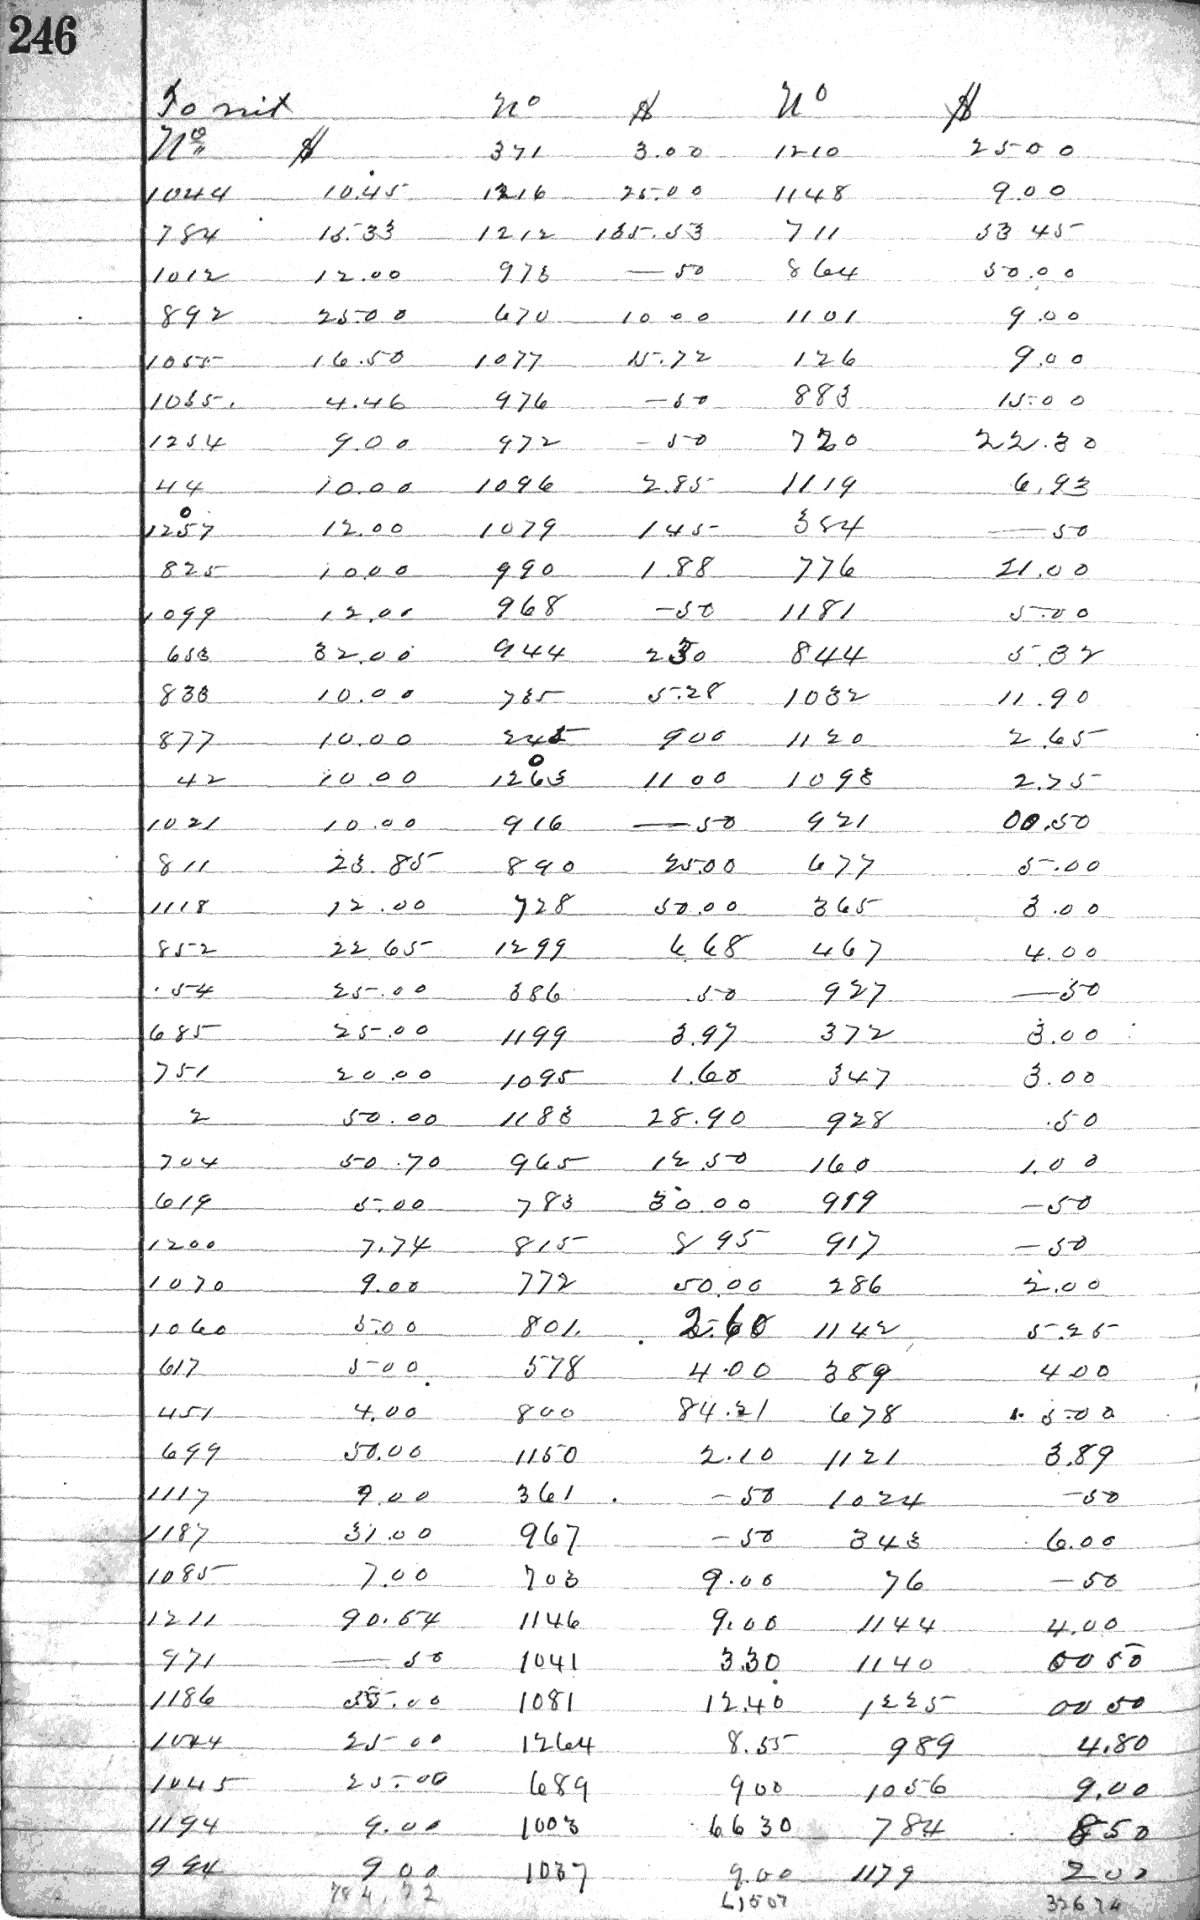 246
To mit Nº $ Nº $
Nº $ 371 3.00 1210 25.00
1044 10.45 1216 25.00 1148 9.00
784 15.33 1212 135.53 711 53 45
1012 12.00 973 — 50 864 50.00
892 25.00 670 10 00 1101 9.00
1055 16.50 1077 15.72 126 9.00
1035. 4.46 976 — 50 883 15.00
1254 9.00 972 — 50 720 22.30
44 10.00 1096 2.85 1119 6.93
1257 12.00 1079 1 45 384 — 50
825 10.00 990 1.88 776 21.00
1099 12.00 968 — 50 1181 5.00
653 32.00 944 2 30 844 5.32
833 10.00 735 5.28 1032 11.90
877 10.00 245 9 00 1120 2.65
42 10.00 1263 11 00 1093 2.75
1021 10.00 916 — 50 921 00.50
811 23.85 890 25.00 677 5.00
1118 12.00 728 50.00 365 3.00
852 22 65 1299 6 68 467 4.00
54 25.00 386 .50 927 — 50
685 25.00 1199 3.97 372 3.00
751 20.00 1095 1.60 347 3.00
2 50.00 1183 28.90 928 .50
704 50.70 965 12.50 160 1.00
619 5.00 783 30.00 919 — 50
1200 7.74 815 8 95 917 — 50
1070 9.00 772 50.00 286 2.00
1060 5.00 801. 2.60 1142 5.25
617 5 00 578 4.00 389 4 00
451 4.00 800 84.21 678 5.00
699 50.00 1150 2.10 1121 3.89
1117 9.00 361 — 50 1024 — 50
1187 31.00 967 — 50 343 6.00
1085 7.00 703 9.00 76 — 50
1211 90.64 1146 9.00 1144 4.00
971 — 50 1041 3.30 1140 00 50
1186 35.00 1081 12.40 1225 00 50
1044 25 00 1264 8.55 989 4.80
1045 25.00 689 9 00 1056 9.00
1194 9.00 1003 66 30 784 8 50
994 9 00 1037 9.00 1179 2 00
784.72 615 07 326 74